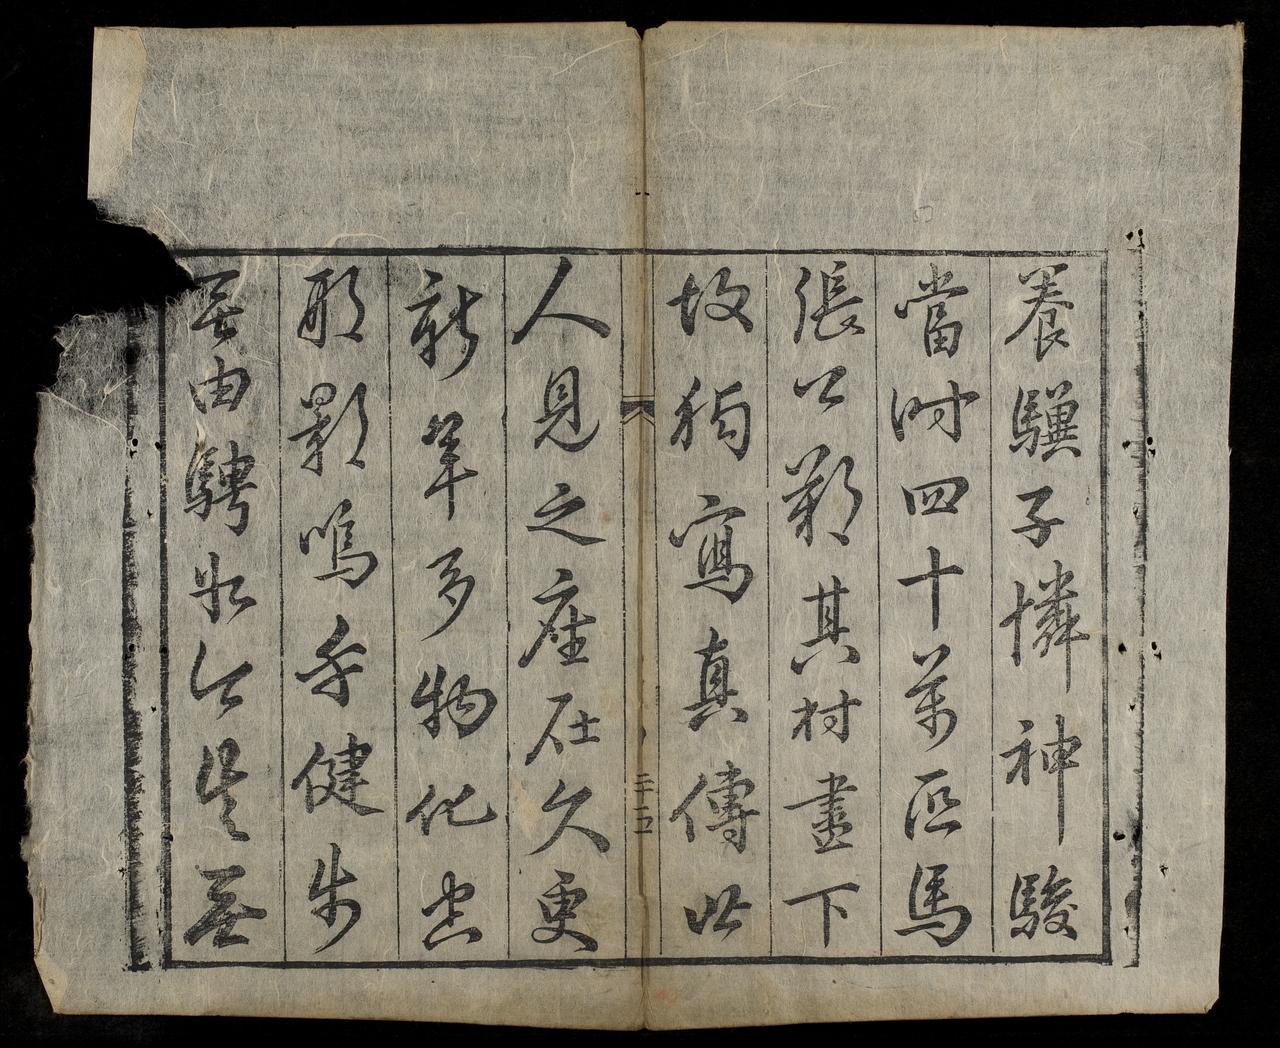 養驥子憐神駿
當時四十萬匹馬
張公歎其材盡下
故獨寫真傳世
人見之座右久更
新年多物化空
形影嗚呼健步
無由騁如今豈無